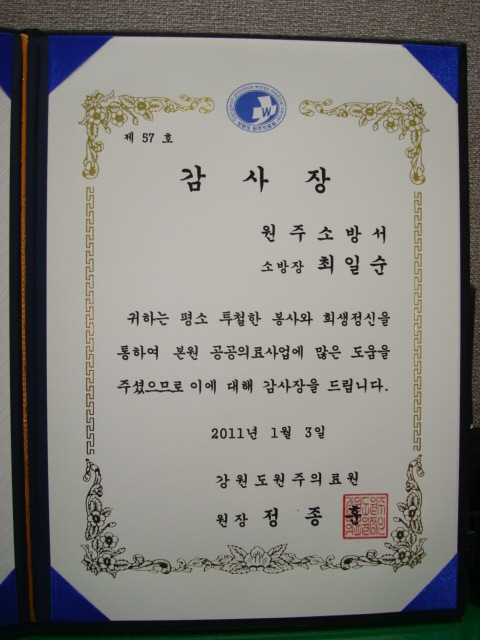 제 57 호
감 사 장
원주소방서
소방장 최일순
귀하는 평소 투철한 봉사와 희생정신을
통하여 본원 공공의료사업에 많은 도움을
주셨으므로 이에 대해 감사장을 드립니다.
2011년 1월 3일
강원도원주의료원
원장 정종훈